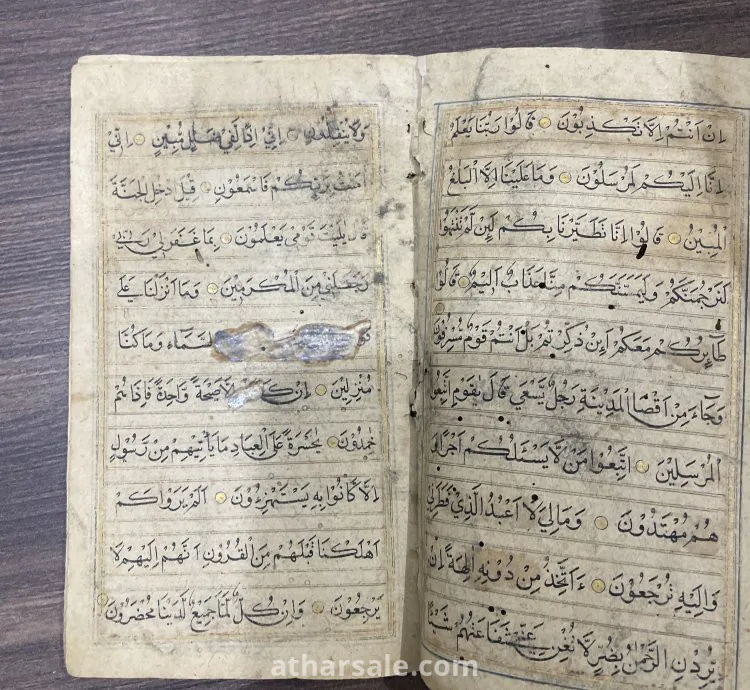 اِنْ اَنْتُمْ اِلَّا تَكْذِبُوْنَ قَالُوْا رَبُّنَا يَعْلَمُ
اِنَّا اِلَيْكُمْ لَمُرْسَلُوْنَ وَمَا عَلَيْنَا اِلَّا الْبَلٰغُ
الْمُبِيْنُ قَالُوْا اِنَّا تَطَيَّرْنَا بِكُمْ لَئِنْ لَمْ تَنْتَهُوْا
لَنَرْجُمَنَّكُمْ وَلَيَمَسَّنَّكُمْ مِنَّا عَذَابٌ اَلِيْمٌ قَالُوْا
طَآئِرُكُمْ مَعَكُمْ اَئِنْ ذُكِّرْتُمْ بَلْ اَنْتُمْ قَوْمٌ مُسْرِفُوْنَ
وَجَآءَ مِنْ اَقْصَا الْمَدِيْنَةِ رَجُلٌ يَسْعٰى قَالَ يٰقَوْمِ اتَّبِعُوا
الْمُرْسَلِيْنَ اتَّبِعُوْا مَنْ لَّا يَسْئَلُكُمْ اَجْرًا وَ
هُمْ مُهْتَدُوْنَ وَمَالِيَ لَا اَعْبُدُ الَّذِيْ فَطَرَنِيْ
وَاِلَيْهِ تُرْجَعُوْنَ ءَاَتَّخِذُ مِنْ دُوْنِهٖ اٰلِهَةً اِنْ
يُرِدْنِ الرَّحْمٰنُ بِضُرٍّ لَّا تُغْنِ عَنِّيْ شَفَاعَتُهُمْ شَيْئًا
وَلَا يُنْقِذُوْنِ اِنِّيْ اِذًا لَفِيْ ضَلٰلٍ مُبِيْنٍ اِنِّيْ
اٰمَنْتُ بِرَبِّكُمْ فَاسْمَعُوْنِ قِيْلَ ادْخُلِ الْجَنَّةَ
قَالَ يٰلَيْتَ قَوْمِيْ يَعْلَمُوْنَ بِمَا غَفَرَ لِيْ رَبِّيْ
وَجَعَلَنِيْ مِنَ الْمُكْرَمِيْنَ وَمَا اَنْزَلْنَا عَلٰى
السَّمَآءِ وَمَا كُنَّا
مُنْزِلِيْنَ اِنْ كَانَتْ اِلَّا صَيْحَةً وَّاحِدَةً فَاِذَا هُمْ
خٰمِدُوْنَ يٰحَسْرَةً عَلَى الْعِبَادِ مَا يَأْتِيْهِمْ مِنْ رَسُوْلٍ
اِلَّا كَانُوْا بِهٖ يَسْتَهْزِءُوْنَ اَلَمْ يَرَوْا كَمْ
اَهْلَكْنَا قَبْلَهُمْ مِنَ الْقُرُوْنِ اَنَّهُمْ اِلَيْهِمْ لَا
يَرْجِعُوْنَ وَاِنْ كُلٌّ لَمَّا جَمِيْعٌ لَدَيْنَا مُحْضَرُوْنَ
atharsale.com